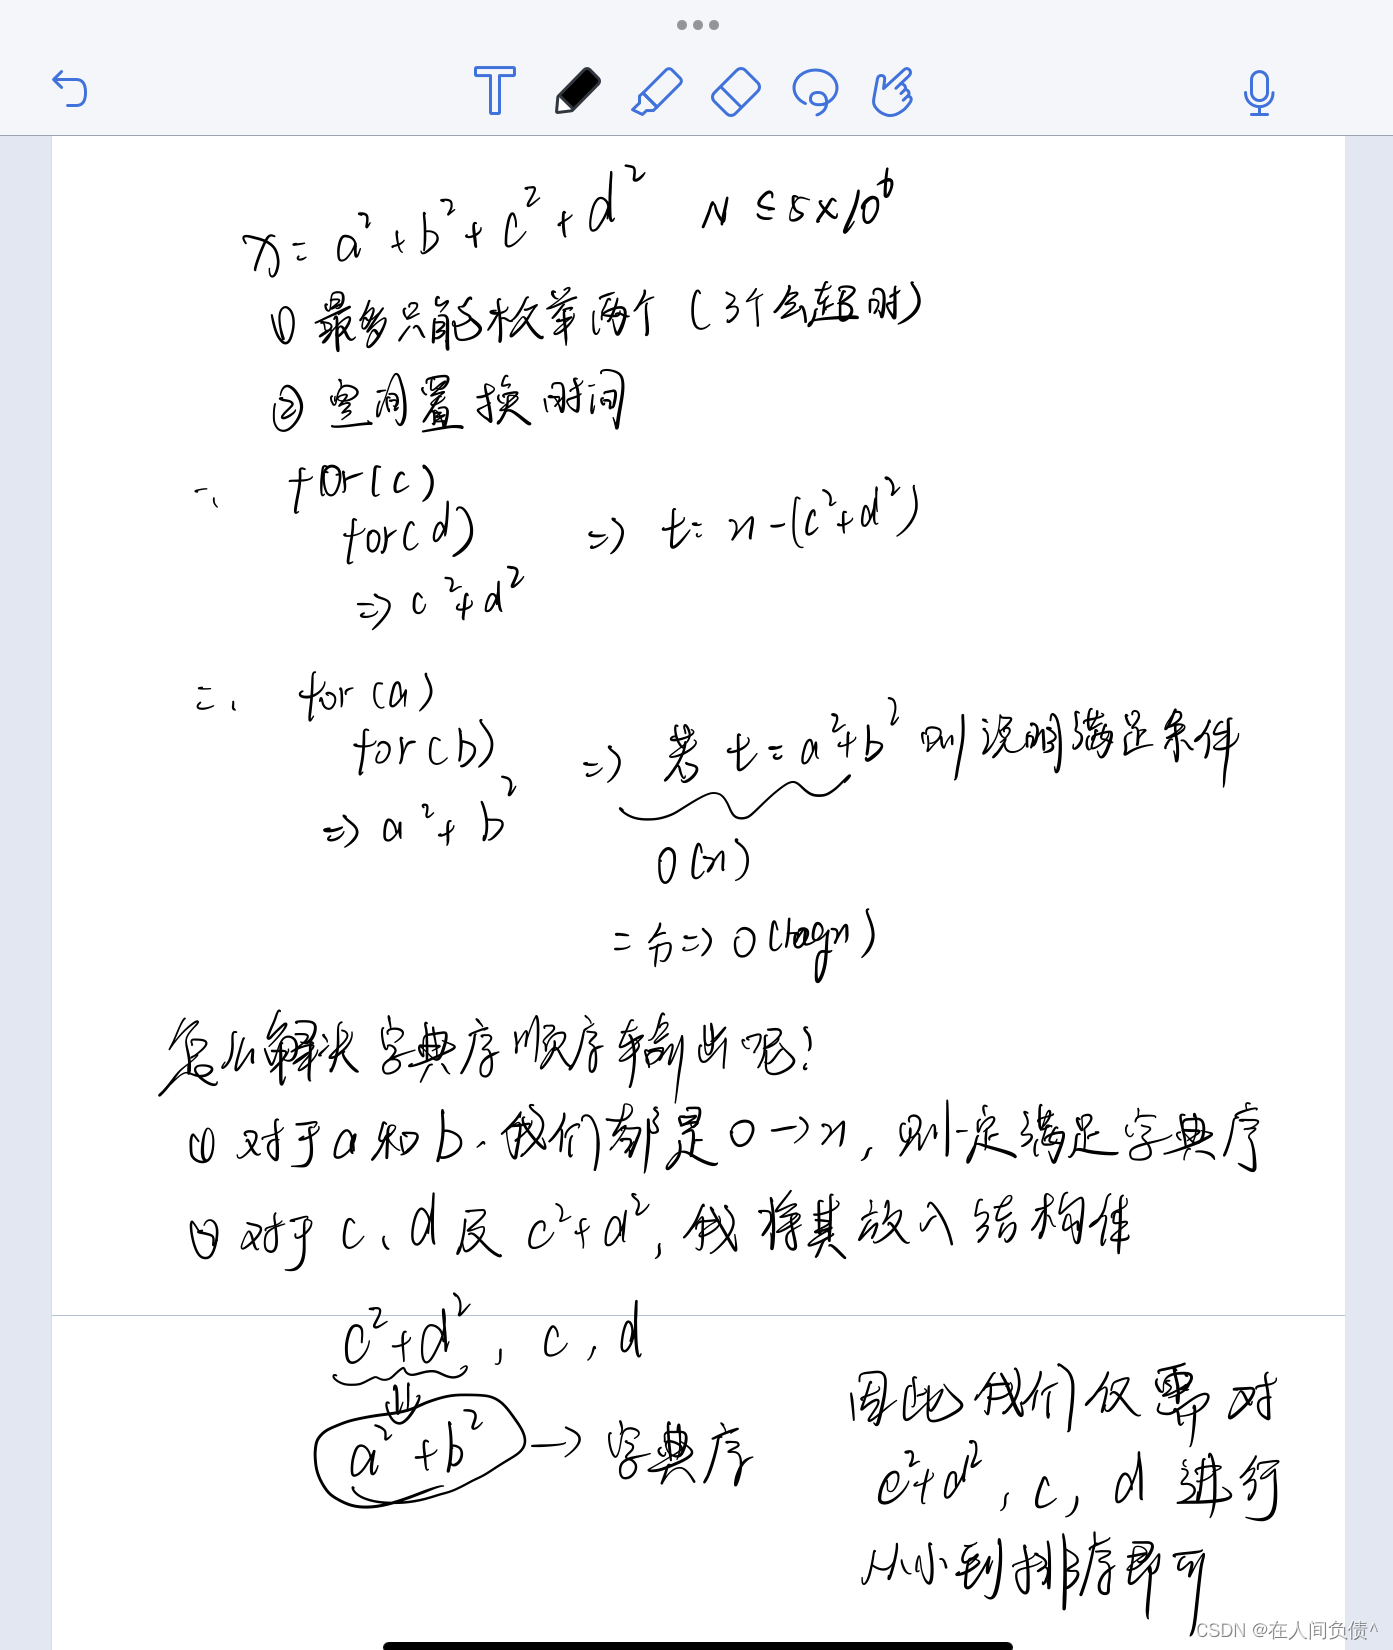 n = a² + b² + c² + d² N ≤ 5×10⁶
① 最多只能枚举两个 (3个会超时)
② 空间置换时间
一、 for(c)
for(d) => t = n - (c²+d²)
=> c²+d²
二、 for(a)
for(b) => 若 t = a²+b² 则说明满足条件
=> a² + b²
O(n)
二分 => O(logn)
怎么解决字典序顺序输出呢?
① 对于a和b、我们都是0→n, 则一定满足字典序
② 对于c、d及c²+d², 我将其放入结构体
c²+d², c, d
a²+b² → 字典序
因此我们仅需对
c²+d², c, d 进行
从小到大排序即可
CSDN @在人间负债^